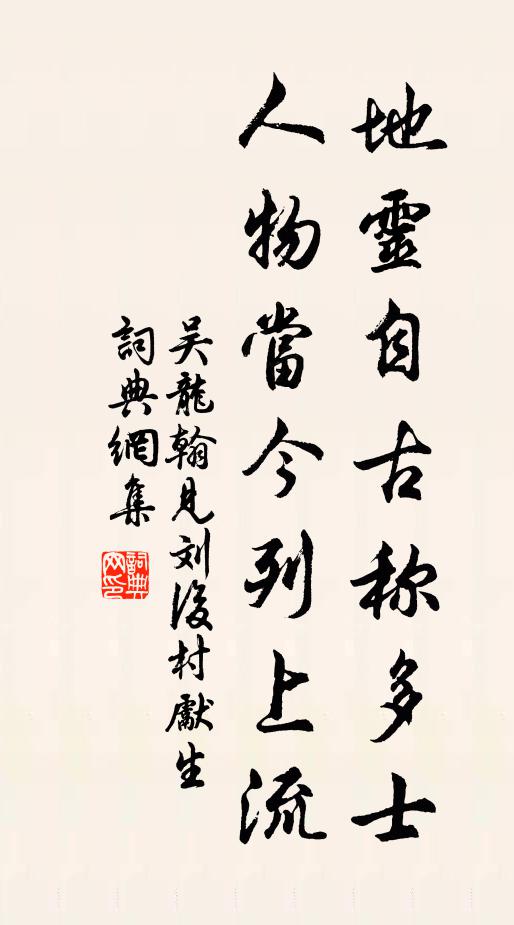 地靈自古称多士
人物當今列上流
吴龍翰見刘後村獻生
詞典網集
詞典網印